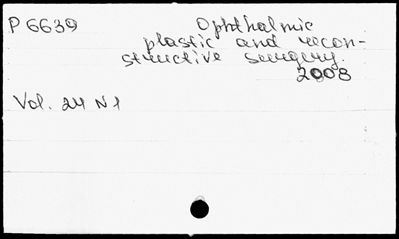 P 6639 Ophthalmic
plastic and recon-
structive surgery.
2008
Vol. 24 N 1